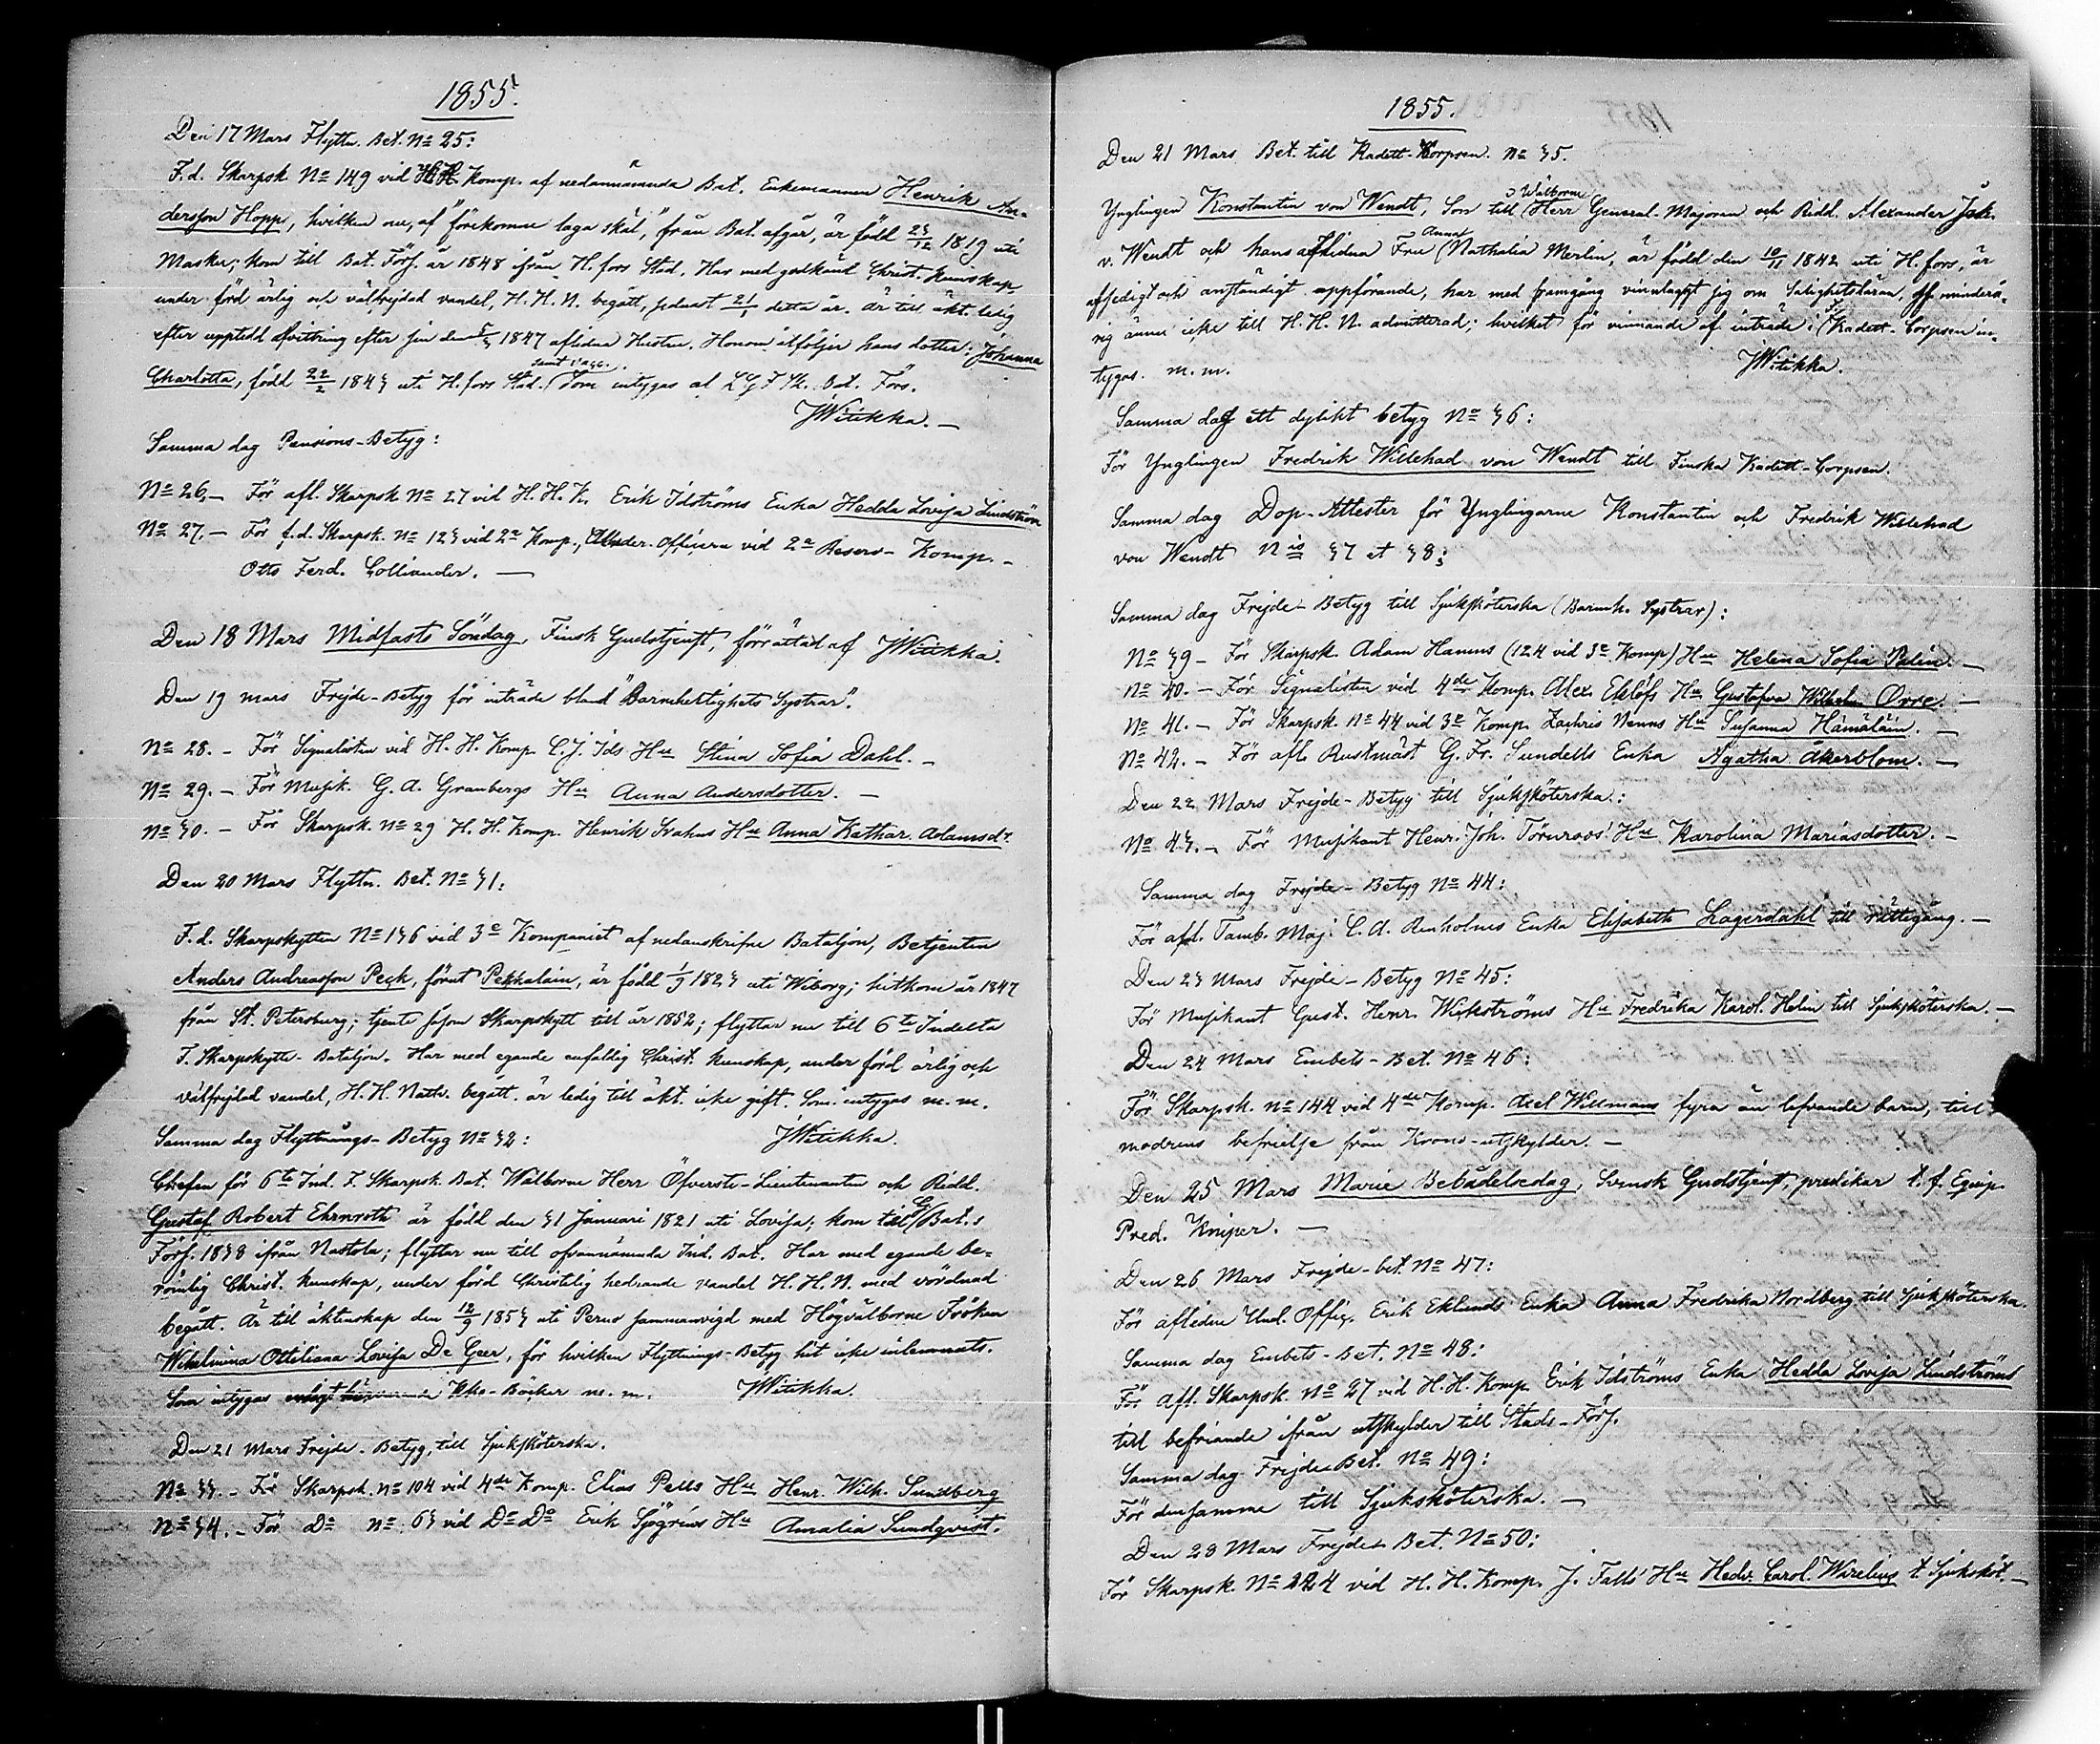 1855.
Den 17 Mars Flyttn. Bet. No 25:
F. d. Skarpsk. No 149 vid H. H. Komp. af nedannämnda Bat. Enkemannen Henrik An-
dersson Hopp, hvilken nu, af "förekomne laga skäl", från Bat. afgår, är född 23/12 1819 uti
Masku; kom till Bat. Förs. år 1848 ifrån H.fors Stad. Har med godkänd Christ. kunskap
under förd ärlig och välfrejdad vandel, H. H. N. begått, sednast 21/1 detta år. Är till äkt. ledig
efter upptedd afvittring efter sin den 1847 aflidna Hustru. Honom åtföljer hans dotter: Johanna
Charlotta, född 22/2 1843 uti H.fors Stad. samt vacc. Som intygas at L. G. F. Sk. Bat. Förs.
JWitikka.
Samma dag Pensions-Betyg:
No 26. – För afl. Skarpsk. No 27 vid H. H. K. Erik Idströms Enka Hedda Lovisa Lindström
No 27. – För f. d. Skarpsk. No 123 vid 2a Komp., Under-officern vid 2a Reserv-Komp. –
Otto Ferd. Colliander. –
Den 18 Mars Midfasto Söndag, Finsk Gudstjenst, förrättad af JWitikka.
Den 19 mars Frejde-Betyg för inträde bland "Barmhertighets Systrar".
No 28. – För Signalisten vid H. H. Komp. C. J. Ids Hu Stina Sofia Dahl. –
No 29. – För Musik. G. A. Granbergs Hu Anna Andersdotter. –
No 30. – För Skarpsk. No 29 H. H. Komp. Henrik Svahns Hu Anna Kathar. Adamsdr.
Den 20 Mars Flyttn. Bet. No 31:
F. d. Skarpskytten No 136 vid 3e Kompaniet af nedanskrifne Bataljon, Betjenten
Anders Andreasson Peck, förut Pekkalain, är född 1/9 1823 uti Wiborg; hitkom år 1847
från St. Petersburg; tjente såsom Skarpskytt till år 1852; flyttar nu till 6te Indelta
F. Skarpskytte-Bataljon. Har med egande enfaldig Christ. kunskap, under förd ärlig och
välfrejdad vandel, H. H. Nattv. begått. är ledig till äkt. icke gift. Som intygas m. m.
Samma dag Flyttnings-Betyg No 32: JWitikka.
Chefen för 6te Ind. F. Skarpsk. Bat. Wälborne Herr Öfverste-Lieutenanten och Ridd.
Gustaf Robert Ehrnroth är född den 31 Januari 1821 uti Lovisa; kom till G. Bat:s
Förs. 1838 ifrån Nastola; flyttar nu till ofvannämnda Ind. Bat. Har med egande be-
römlig Christ. kunskap, under förd Christelig hedrande vandel H. H. N. med vördnad
begått. Är till äktenskap den 12/9 1853 uti Perno sammanvigd med Högvälborne Fröken
Wilhelmina Ottiliana Lovisa De Geer, för hvilken Flyttnings-Betyg hit icke inlemnats.
Som intygas enligt Kko-Böcker m. m. JWitikka.
Den 21 Mars Frejde-Betyg, till Sjuksköterska.
No 33. – För Skarpsk. No 104 vid 4de Komp. Elias Pells Hu Henr. Wilh. Sundberg
No 34. – För Do No 63 vid Do Do Erik Sjögrens Hu Amalia Sundqvist.
1855.
Den 21 Mars Bet. till Kadett-Corpsen. No 35.
Ynglingen Konstantin von Wendt, Son till Wälborne Herr General-Majoren och Ridd. Alexander Jak.
v. Wendt och hans aflidna Fru Anna Nathalia Merlin, är född den 10/11 1842 uti H.fors, är
af sedigt och anständigt uppförande, har med framgång vinnlaggt sig om Salighetsläran, ss. minderå-
rig ännu icke till H. H. N. admitterad; hvilket för vinnande af inträde i F. Kadett-Corpsen in-
tygas. m. m. JWitikka.
Samma dag ett dylikt betyg No 36:
För Ynglingen Fredrik Willehad von Wendt till Finska Kadett-Corpsen.
Samma dag Dop-Attester för Ynglingarne Konstantin och Fredrik Willehad
von Wendt Nis 37 et 38:
Samma dag Frejde-Betyg till Sjuksköterska (Barmh. Systrar):
No 39 – För Skarpsk. Adam Hanens (124 vid 3e Komp) Hu Helena Sofia Palin. –
No 40. – För Signalisten vid 4de Komp. Alex. Eklöfs Hu Gustafva Wilhelm. Orre. –
No 41. – För Skarpsk. No 44 vid 3e Komp. Zachris Nenns Hu Susanna Hämäläin. –
No 42. – För afl. Rustmäst. G. Fr. Sundells Enka Agatha Åkerblom. –
Den 22 Mars Frejde-Betyg till Sjuksköterska:
No 43. – För Musikant Henr. Joh. Törnroos' Hu Karolina Mariasdotter. –
Samma dag Frejde-Betyg No 44:
För afl. Tamb. Maj. C. A. Renholms Enka Elisabeth Lagerdahl till rättegång. –
Den 23 Mars Frejde-Betyg No 45:
För Musikant Gust. Henr. Wickströms Hu Fredrika Karol. Helin till Sjuksköterska. –
Den 24 Mars Embets-Bet. No 46:
För Skarpsk. No 144 vid 4de Komp. Axel Willmans fyra än lefvande barn, till
modrens befrielse från Krono-utskylder. –
Den 25 Mars Marie Bebådelsedag, Svensk Gudstjenst, predikar t. f. Equip.
Pred. Kniper. –
Den 26 Mars Frejde-bet. No 47:
För aflidne Und. Offic. Erik Eklunds Enka Anna Fredrika Nordberg till Sjuksköterska.
Samma dag Embets-Bet. No 48:
För Afl. Skarpsk. No 27 vid H. H. Komp. Erik Idströms Enka Hedda Lovisa Lindströms
till befriande ifrån utskylder till Stads-Förs.
Samma dag Frejde-Bet. No 49:
För densamma till Sjuksköterska. –
Den 28 Mars Frejde-Bet. No 50:
För Skarpsk. No 224 vid H. H. Komp. J. Falls Hu Hedv. Carol. Warelius t. Sjuksköt. –